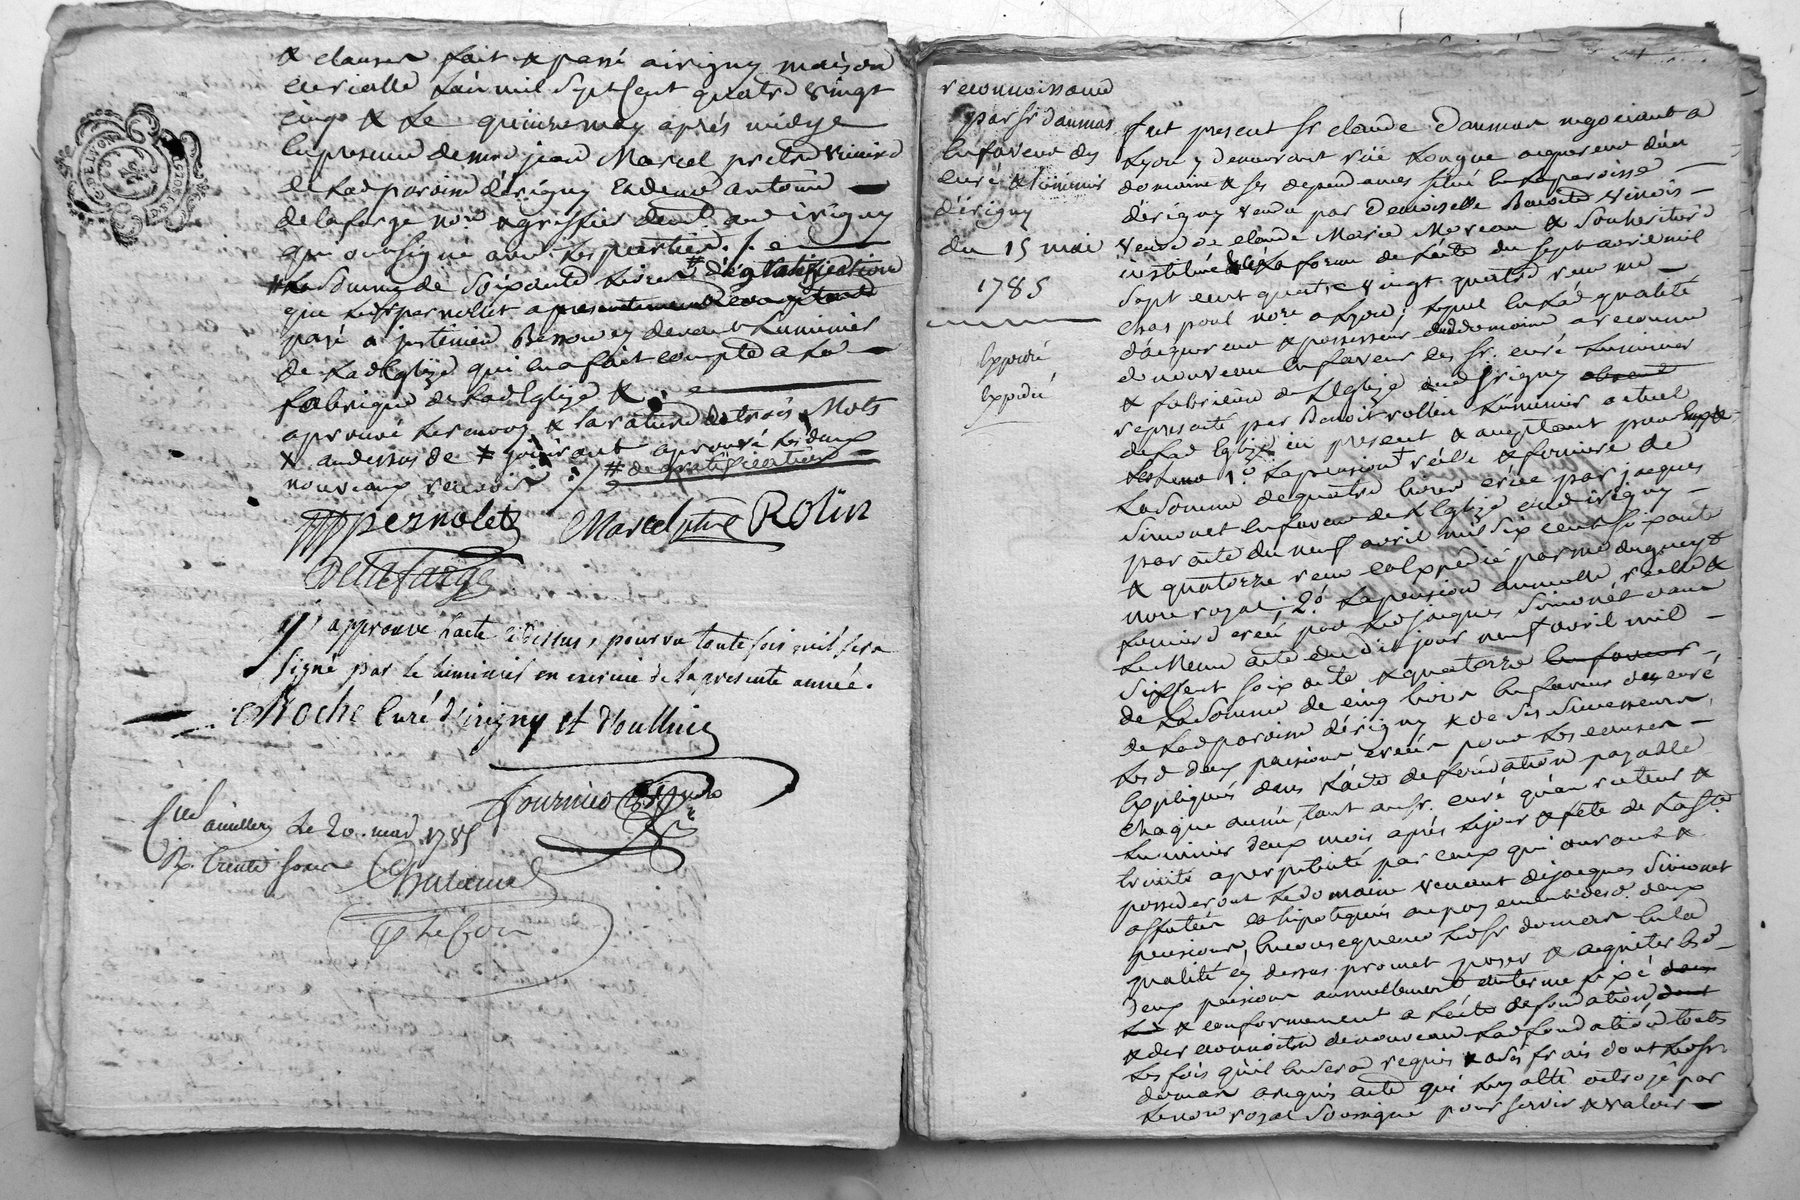 & clauses fait & passé a irigny maison
curialle l'an mil sept cent quatre vingt
cinq & le quinze may après midy en
la presence de mre jean Marcel pretre vicaire
de lad paroisse d'irigny et de me antoine
delafarge nore & greffier demt aud irigny
qui ont signé avec les parties ./.
# la somme de soixante livres # de gratification
que led sr pernollet a presentement
payé a justinien cy devant luminier
de lad Eglize qui en a fait compte a la
fabrique de lad Eglize &
aprouvé le renvoy & la rature de trois Mots
& au dessus de # aprouvé les deux
nouveaux renvois ./. # de gratification
pernolet Marcel ptre Rolin
Delafarge
J'approuve l'acte ci dessus, pourvu toutefois qu'il sera
signé par le luminier en exercice de la presente année.
Roche Curé d'irigny et d'oullins
Fournier
le 20 mai 1785
R. trente sous
reconnoissance
par sr daumas
en faveur des
curé & luminier
d'irigny
du 15 mai
1785
expedié
Fut present sr claude Daumas negociant a
Lyon y demeurant rüe Longue acquereur d'un
domaine & ses dependances situé en la paroisse
d'irigny vendu par Demoiselle Benoite
veuve de claude Marie Moreau & son heritiere
instituée la forme de l'acte du sept avril mil
sept cent quatre vingt quatre recu me
nore a Lyon; lequel en lad qualité
d'acquereur & possesseur dud domaine a reconnu
de nouveau en faveur des sr. curé luminier
& fabricien de l'Eglize dud irigny absent
representé par Benoit rollin luminier actuel
de lad Eglize cy present & acceptant pour
1o. la pension réelle & fonciere de
la somme de quatre livres créée par jacques
Simonet en faveur de l'Eglize dud irigny
par acte du neuf avril mil six cent soixante
& quatorze recu et expedié par me
nore royal; 2o. la pension annuelle réelle &
fonciere créée par led jacques Simonet dans
le Meme acte dud jour neuf avril mil
six cent soixante & quatorze en faveur
de la somme de cinq livres en faveur du curé
de lad paroisse d'irigny & de ses successeurs,
lesd deux pensions créées pour les causes
expliquées dans l'acte de fondation payable
chaque année, tant au sr. curé qu'au recteur &
luminier deux mois après le jour & fête de la Ste
trinité a perpetuité par ceux qui auront &
possederont le domaine venant de jacques Simonet
affectés & hipotequés au payement desd. deux
pensions, en consequence led sr daumas en la
qualité cy dessus promet payer & acquitter lesd
deux pensions annuellement au terme fixé
& conformement a l'acte de fondation
& de reconnoitre de nouveau lad fondation toutes
les fois qu'il en sera requis & a ses frais dont led sr
daumas a requis acte qui luy a été octroyé par
le nore royal soussigné pour servir & valoir